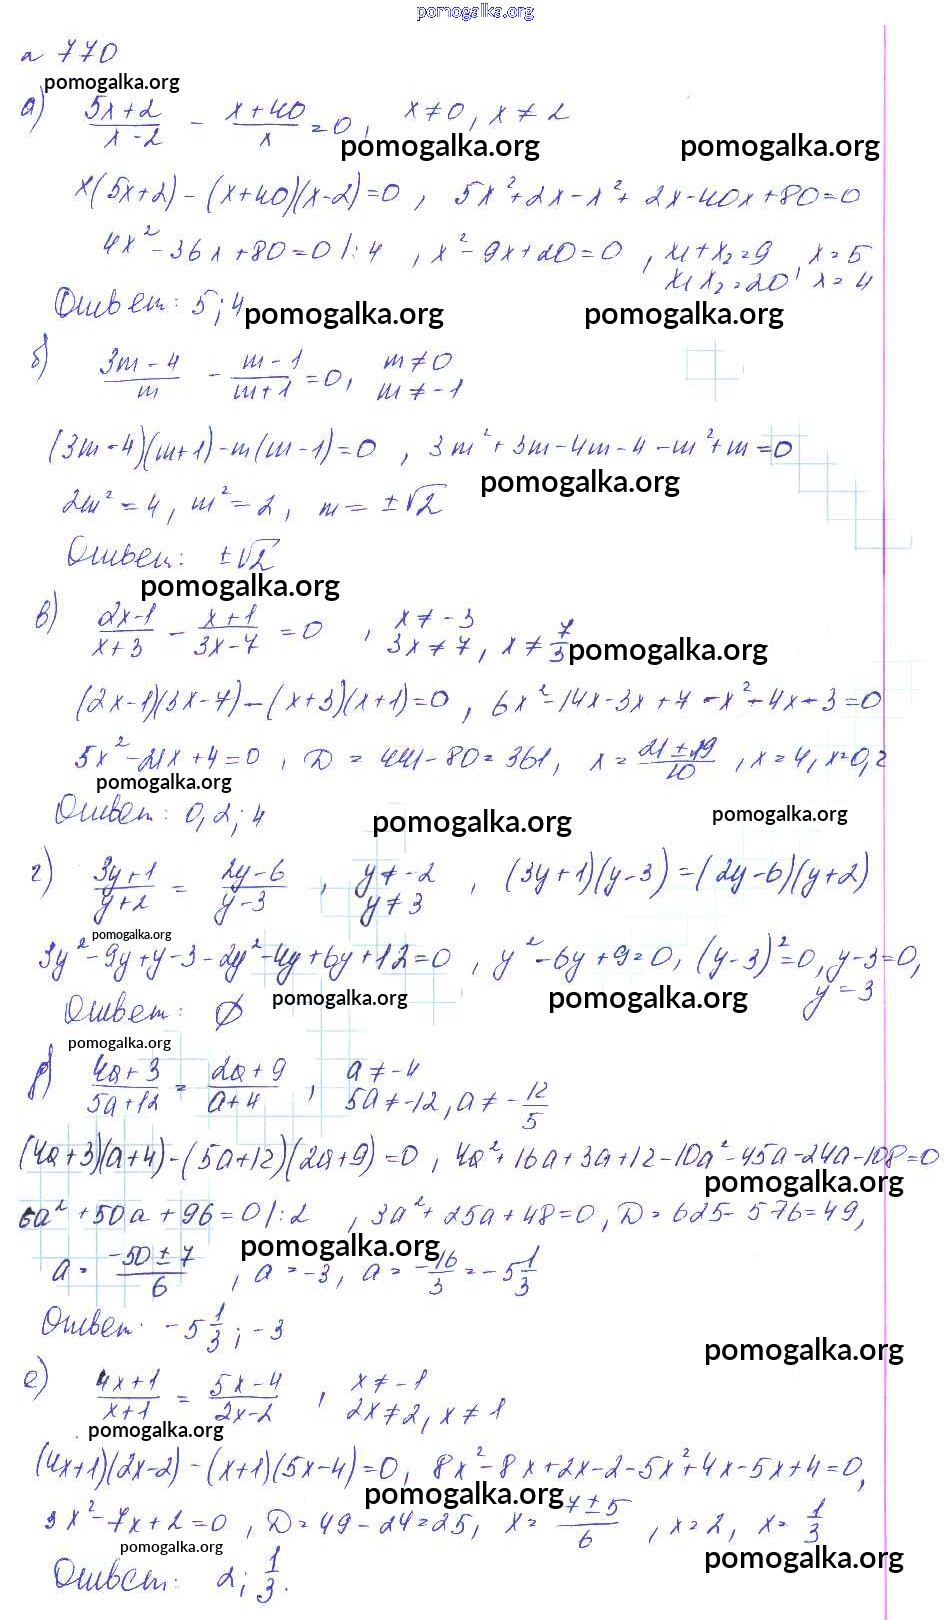 pomogalka.org
№ 770
pomogalka.org
а) (5x+2)/(x-2) - (x+40)/x = 0, x≠0, x≠2
pomogalka.org pomogalka.org
x(5x+2)-(x+40)(x-2)=0, 5x²+2x-x²+2x-40x+80=0
4x²-36x+80=0 |:4, x²-9x+20=0, x₁+x₂=9 x=5
x₁x₂=20, x=4
Ответ: 5; 4
pomogalka.org pomogalka.org
б) (3m-4)/m - (m-1)/(m+1) = 0, m≠0
m≠-1
(3m-4)(m+1)-m(m-1)=0, 3m²+3m-4m-4-m²+m=0
pomogalka.org
2m²=4, m²=2, m=±√2
Ответ: ±√2
pomogalka.org
в) (2x-1)/(x+3) - (x+1)/(3x-7) = 0, x≠-3
3x≠7, x≠7/3
pomogalka.org
(2x-1)(3x-7)-(x+3)(x+1)=0, 6x²-14x-3x+7-x²-4x-3=0
5x²-21x+4=0, D=441-80=361, x=(21±19)/10, x=4, x=0,2
pomogalka.org
Ответ: 0,2; 4
pomogalka.org pomogalka.org
г) (3y+1)/(y+2) = (2y-6)/(y-3), y≠-2, (3y+1)(y-3)=(2y-6)(y+2)
y≠3
pomogalka.org
3y²-9y+y-3-2y²-4y+6y+12=0, y²-6y+9=0, (y-3)²=0, y-3=0,
y=3
pomogalka.org pomogalka.org
Ответ: ∅
pomogalka.org
д) (4a+3)/(5a+12) = (2a+9)/(a+4), a≠-4
5a≠-12, a≠-12/5
(4a+3)(a+4)-(5a+12)(2a+9)=0, 4a²+16a+3a+12-10a²-45a-24a-108=0
pomogalka.org
6a²+50a+96=0 |:2, 3a²+25a+48=0, D=625-576=49,
pomogalka.org
a=(-50±7)/6, a=-3, a=-16/3=-5 1/3
Ответ: -5 1/3; -3
pomogalka.org
е) (4x+1)/(x+1) = (5x-4)/(2x-2), x≠-1
2x≠2, x≠1
pomogalka.org
(4x+1)(2x-2)-(x+1)(5x-4)=0, 8x²-8x+2x-2-5x²+4x-5x+4=0,
pomogalka.org
3x²-7x+2=0, D=49-24=25, x=(7±5)/6, x=2, x=1/3
pomogalka.org pomogalka.org
Ответ: 2; 1/3.